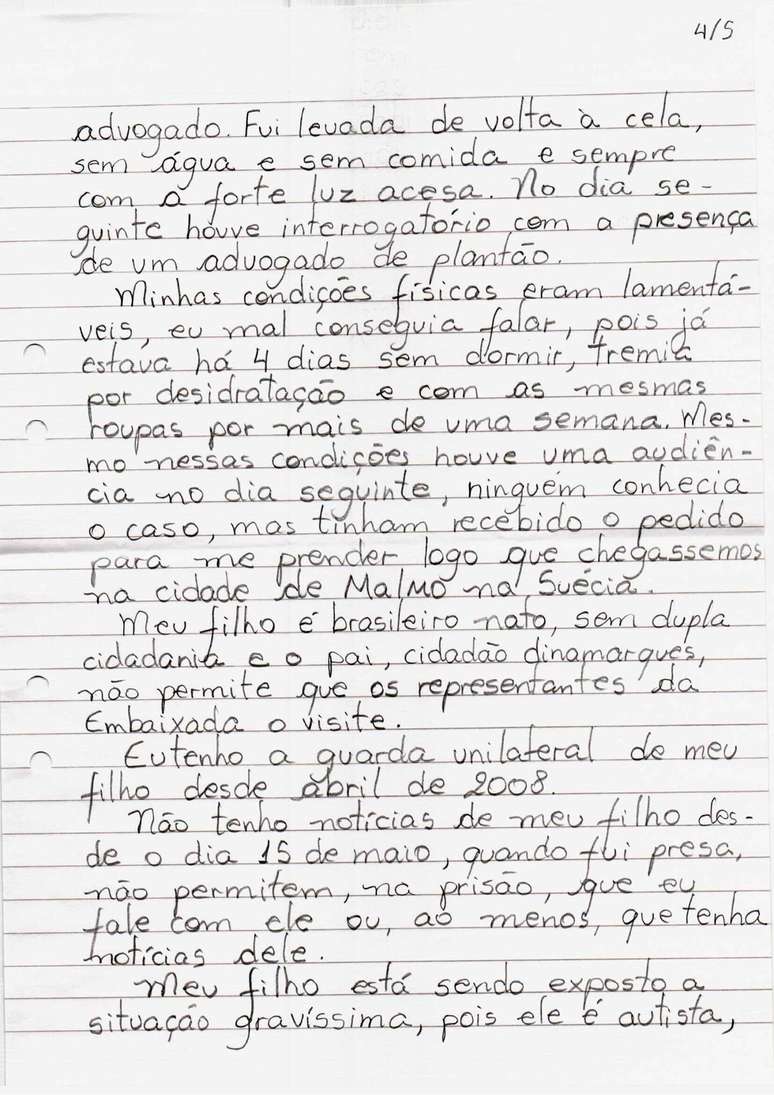 4/5
advogado. Fui levada de volta à cela,
sem água e sem comida e sempre
com a forte luz acesa. No dia se-
guinte houve interrogatório com a presença
de um advogado de plantão.
Minhas condições físicas eram lamentá-
veis, eu mal conseguia falar, pois já
estava há 4 dias sem dormir, tremia
por desidratação e com as mesmas
roupas por mais de uma semana. Mes-
mo nessas condições houve uma audiên-
cia no dia seguinte, ninguém conhecia
o caso, mas tinham recebido o pedido
para me prender logo que chegassemos
na cidade de Malmö na Suécia.
Meu filho é brasileiro nato, sem dupla
cidadania e o pai, cidadão dinamarquês,
não permite que os representantes da
Embaixada o visite.
Eu tenho a guarda unilateral de meu
filho desde abril de 2008.
Não tenho notícias de meu filho des-
de o dia 15 de maio, quando fui presa,
não permitem, na prisão, que eu
fale com ele ou, ao menos, que tenha
notícias dele.
Meu filho está sendo exposto a
situação gravíssima, pois ele é autista,